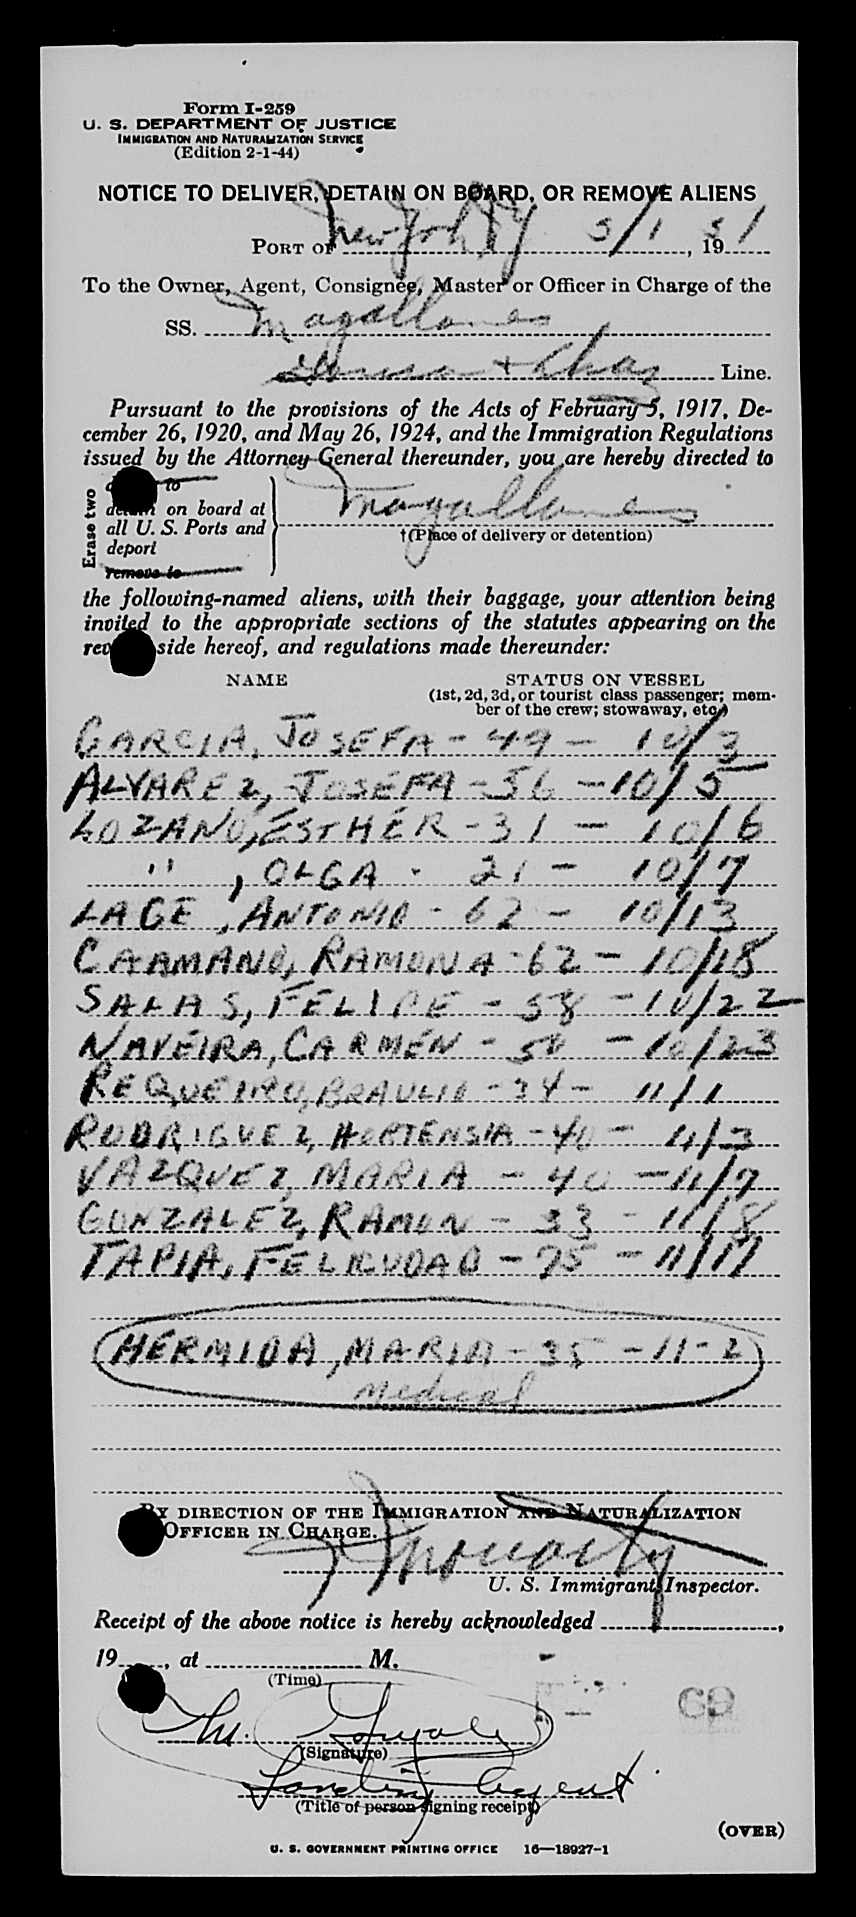 Form I-259
U. S. DEPARTMENT OF JUSTICE
IMMIGRATION AND NATURALIZATION SERVICE
(Edition 2-1-44)
NOTICE TO DELIVER, DETAIN ON BOARD, OR REMOVE ALIENS
PORT OF New York NY 5/1, 19 51
To the Owner, Agent, Consignee, Master or Officer in Charge of the
SS. Magallanes
+ Line.
Pursuant to the provisions of the Acts of February 5, 1917, De-
cember 26, 1920, and May 26, 1924, and the Immigration Regulations
issued by the Attorney General thereunder, you are hereby directed to
Erase two
to
on board at
all U. S. Ports and
deport
remove to
Magallanes
†(Place of delivery or detention)
the following-named aliens, with their baggage, your attention being
invited to the appropriate sections of the statutes appearing on the
side hereof, and regulations made thereunder:
NAME STATUS ON VESSEL
(1st, 2d, 3d, or tourist class passenger; mem-
ber of the crew; stowaway, etc.)
GARCIA, JOSEFA - 49 - 10/3
ALVAREZ, JOSEFA - 56 - 10/5
LOZANO, ESTHER - 31 - 10/6
" , OLGA - 21 - 10/7
LAGE, ANTONIO - 62 - 10/13
CAAMANO, RAMONA - 62 - 10/18
SALAS, FELIPE - 58 - 10/22
NAVEIRA, CARMEN - 50 - 10/23
REQUEIRO, BRAULIO - 34 - 11/1
RODRIGUEZ, HORTENSIA - 40 - 11/3
VAZQUEZ, MARIA - 40 - 11/7
GONZALEZ, RAMON - 33 - 11/8
TAPIA, FELICUDAD - 75 - 11/17
HERMIDA, MARIA - 35 - 11-2
medical
BY DIRECTION OF THE IMMIGRATION AND NATURALIZATION
OFFICER IN CHARGE.
U. S. Immigrant Inspector.
Receipt of the above notice is hereby acknowledged ,
19 , at M.
(Time)
69
(Signature)
Landing Agent
(Title of person signing receipt)
(OVER)
U. S. GOVERNMENT PRINTING OFFICE 16—18927-1